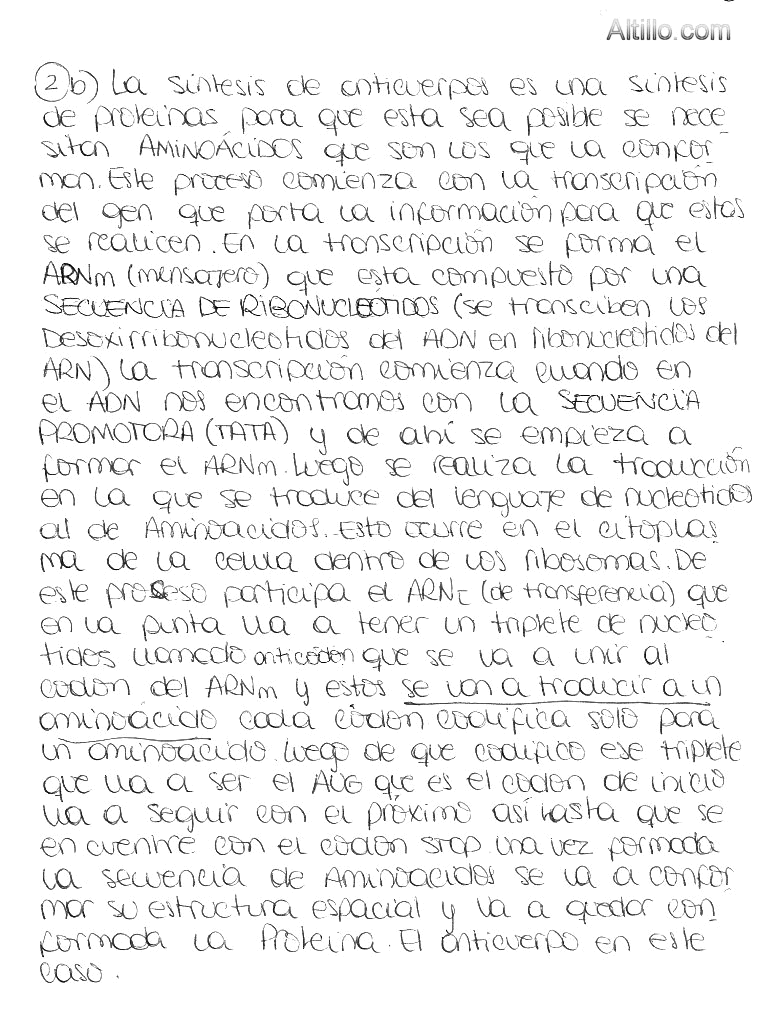 Altillo.com
2 b) La sintesis de anticuerpos es una sintesis
de proteinas para que esta sea posible se nece
sitan AMINOÁCIDOS que son los que la confor
man. Este proceso comienza con la transcripción
del gen que porta la información para que estas
se realicen. En la transcripción se forma el
ARNm (mensajero) que esta compuesto por una
SECUENCIA DE RIBONUCLEÓTIDOS (se transciben los
Desoxirribonucleotidos del ADN en ribonucleotidos del
ARN) La transcripción comienza cuando en
el ADN nos encontramos con la SECUENCIA
PROMOTORA (TATA) y de ahí se empieza a
formar el ARNm. Luego se realiza la traducción
en la que se traduce del lenguaje de nucleotidos
al de Aminoacidos. Esto ocurre en el citoplas
ma de la celula dentro de los ribosomas. De
este proceso participa el ARNt (de transferencia) que
en la punta va a tener un triplete de nucleo
tidos llamado anticodon que se va a unir al
codon del ARNm y estos se van a traducir a un
aminoácido cada codon codifica solo para
un aminoacido. Luego de que codifico ese triplete
que va a ser el AUG que es el codon de inicio
va a seguir con el próximo así hasta que se
encuentre con el codon stop una vez formada
la secuencia de Aminoacidos se va a confor
mar su estructura espacial y va a quedar con
formada la Proteina. El anticuerpo en este
caso.